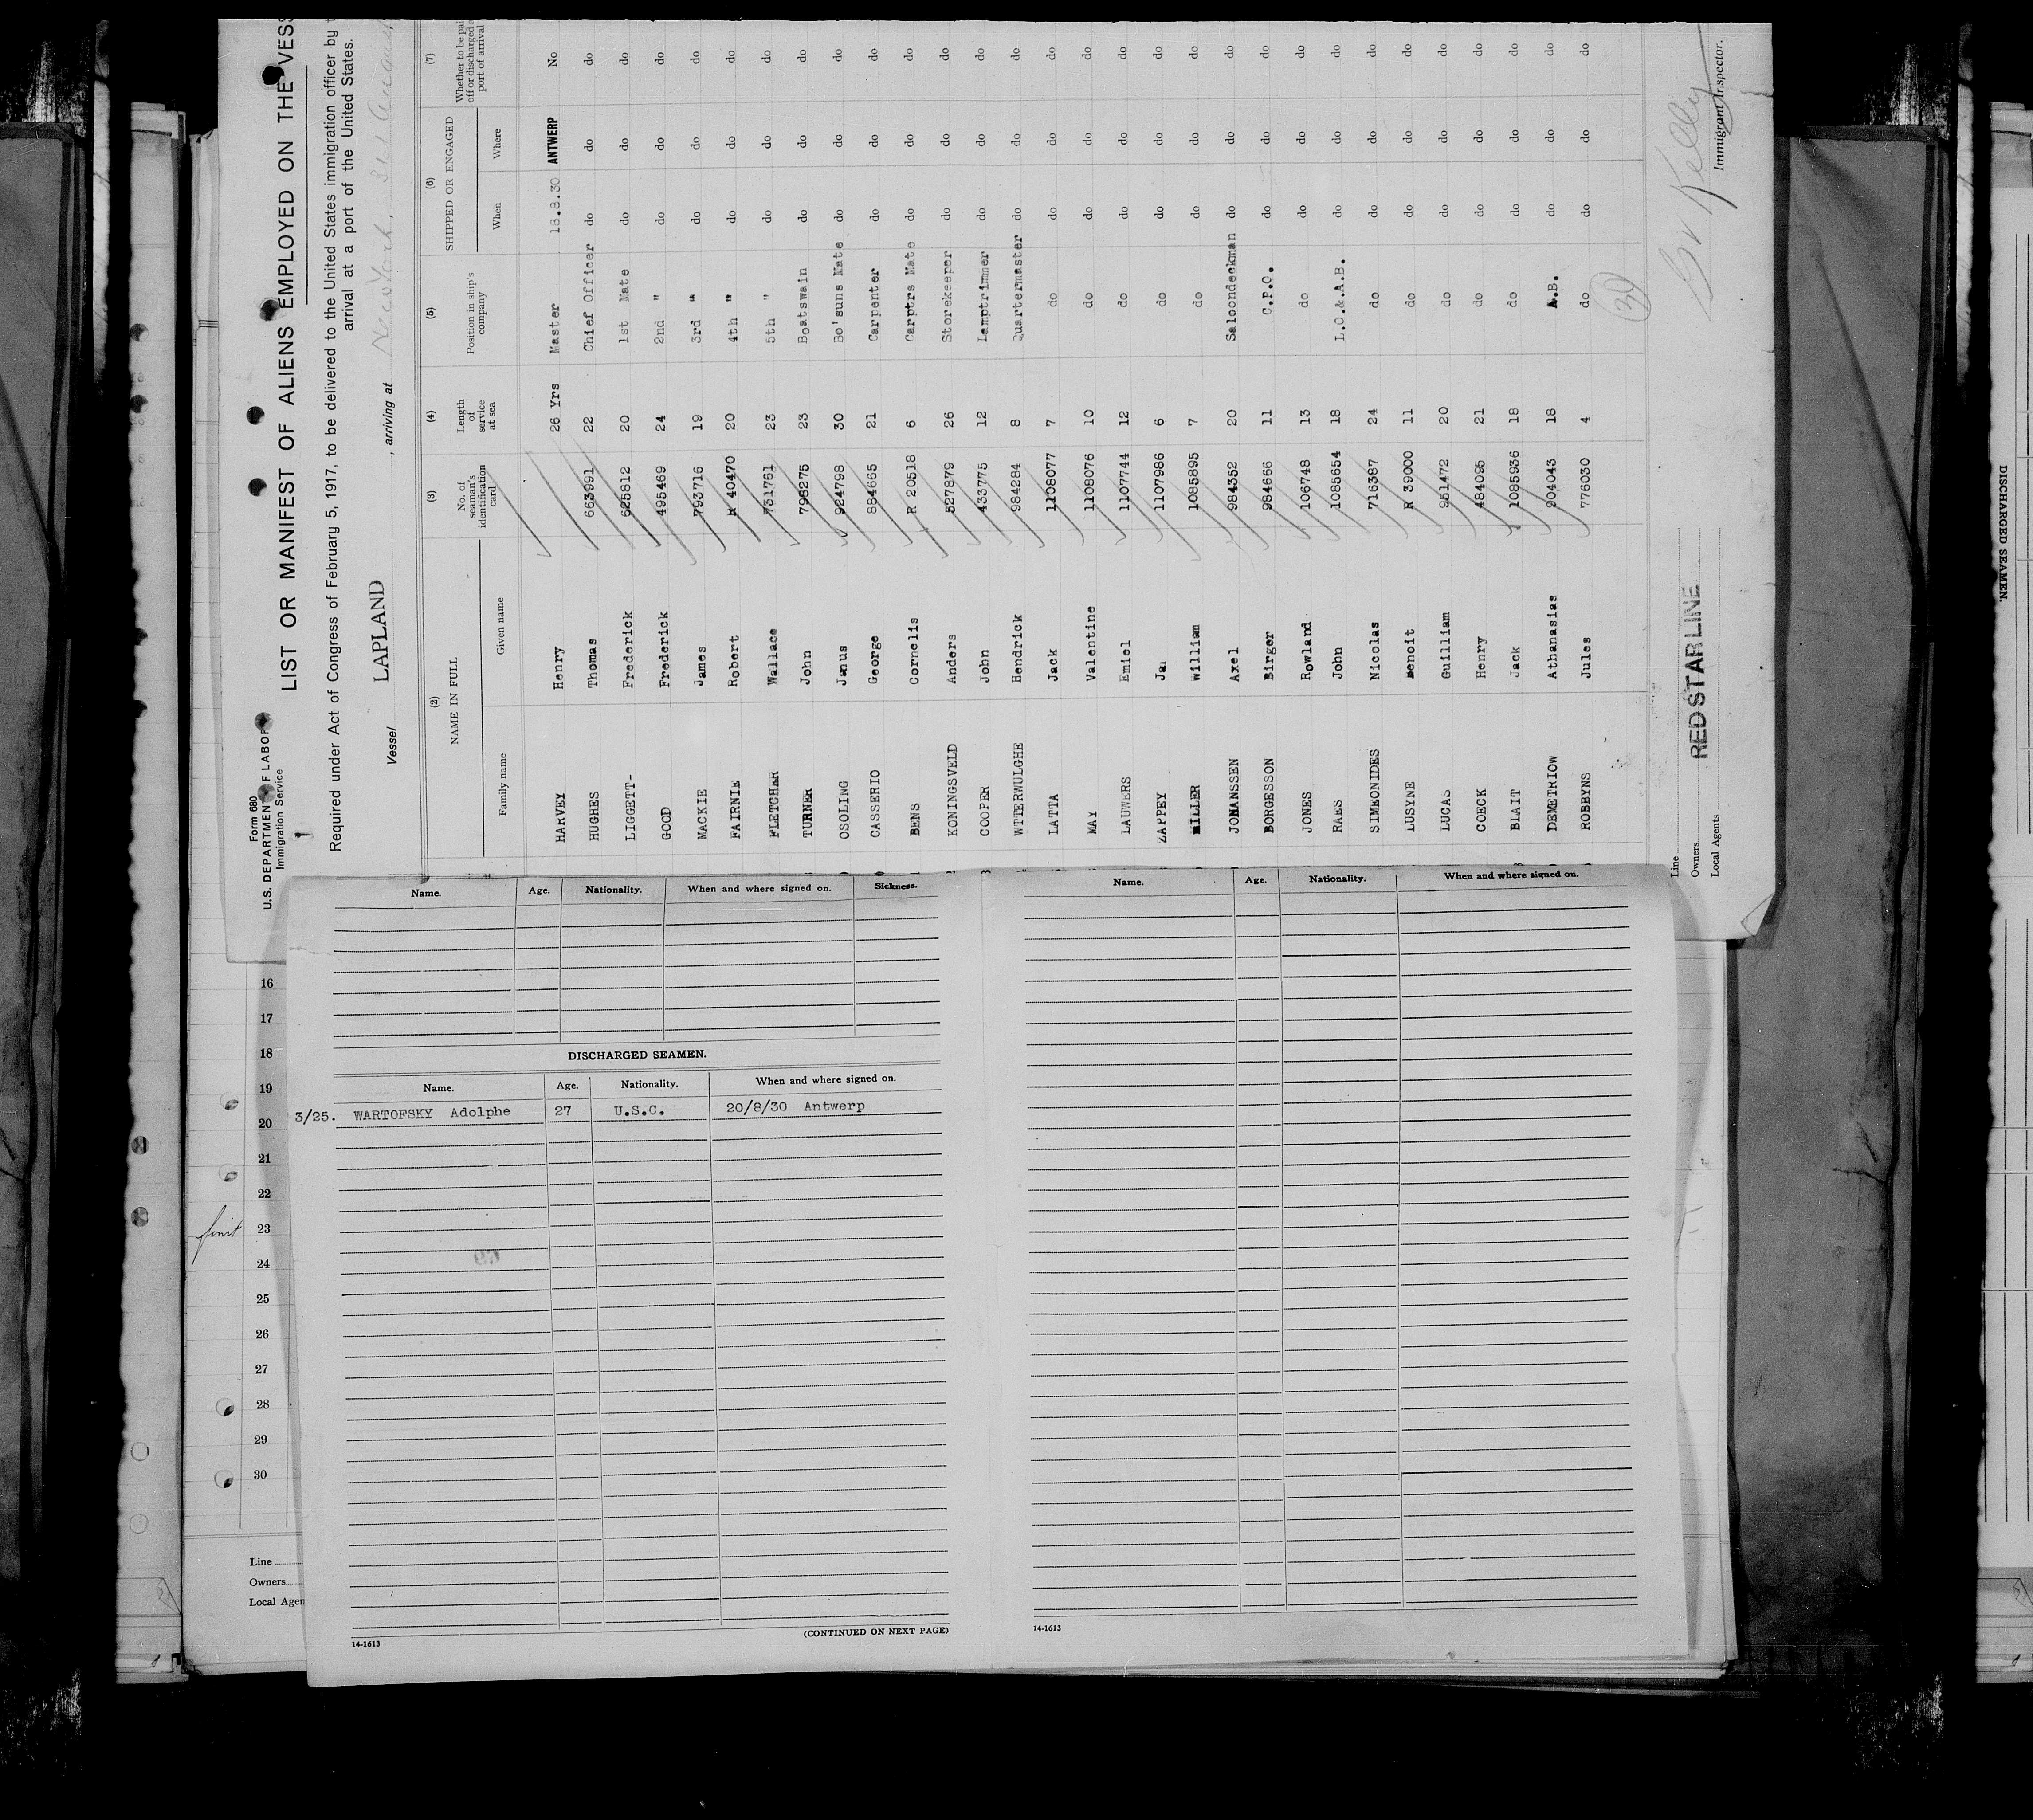 Form 680
U.S. DEPARTMENT OF LABOR
Immigration Service
1
LIST OR MANIFEST OF ALIENS EMPLOYED ON THE VESS
Required under Act of Congress of February 5, 1917, to be delivered to the United States immigration officer by t
arrival at a port of the United States.
Vessel LAPLAND , arriving at New York, 31st August,
(2) (3) (4) (5) (6) (7)
NAME IN FULL No. of seaman's identification card Length of service at sea Position in ship's company SHIPPED OR ENGAGED Whether to be pai off or discharged a port of arrival
Family name Given name When Where
HARVEY Henry 26 Yrs Master 18.8.30 ANTWERP No
HUGHES Thomas 663991 22 Chief Officer do do do
LIGGETT- Frederick 625812 20 1st Mate do do do
GOOD Frederick 495469 24 2nd " do do do
MACKIE James 793716 19 3rd " do do do
FAIRNIE Robert R 40470 20 4th " do do do
FLETCHER Wallace 731761 23 5th " do do do
TURNER John 796275 23 Boatswain do do do
OSOLING Janus 924798 30 Bo'suns Mate do do do
CASSERIO George 884665 21 Carpenter do do do
BENS Cornelis R 20518 6 Carptrs Mate do do do
KONINGSVELD Anders 527879 26 Storekeeper do do do
COOPER John 433775 12 Lamptrimmer do do do
WTTERWULGHE Hendrick 984284 8 Quartermaster do do do
LATTA Jack 1108077 7 do do do do
MAY Valentine 1108076 10 do do do do
LAUWERS Emiel 1107744 12 do do do do
ZAPPEY Jan 1107986 6 do do do do
MILLER William 1085895 7 do do do do
JOHANSSEN Axel 984352 20 Saloondeckman do do do
BORGESSON Birger 984666 11 C.P.O. do do do
JONES Rowland 1106748 13 do do do do
RAES John 1085654 18 L.O.&.A.B. do do do
SIMEONIDES Nicolas 716387 24 do do do do
LUSYNE Benoit R 39000 11 do do do do
LUCAS Guilliam 951472 20 do do do do
COECK Henry 484095 21 do do do do
BLAIT Jack 1085936 18 do do do do
DEMETRIOW Athanasias 904043 18 A.B. do do do
ROBBYNS Jules 776030 4 do do do do
30
Line
Owners REDSTAR LINE
Local Agents
Kelly
Immigrant Inspector.
Name. Age. Nationality. When and where signed on. Sickness.
DISCHARGED SEAMEN.
Name. Age. Nationality. When and where signed on.
3/25. WARTOFSKY Adolphe 27 U.S.C. 20/8/30 Antwerp
14-1613
(CONTINUED ON NEXT PAGE)
Name. Age. Nationality. When and where signed on.
14-1613
16
17
18
19
20
21
22
23
24
25
26
27
28
29
30
Line
Owners
Local Agen
DISCHARGED SEAMEN.